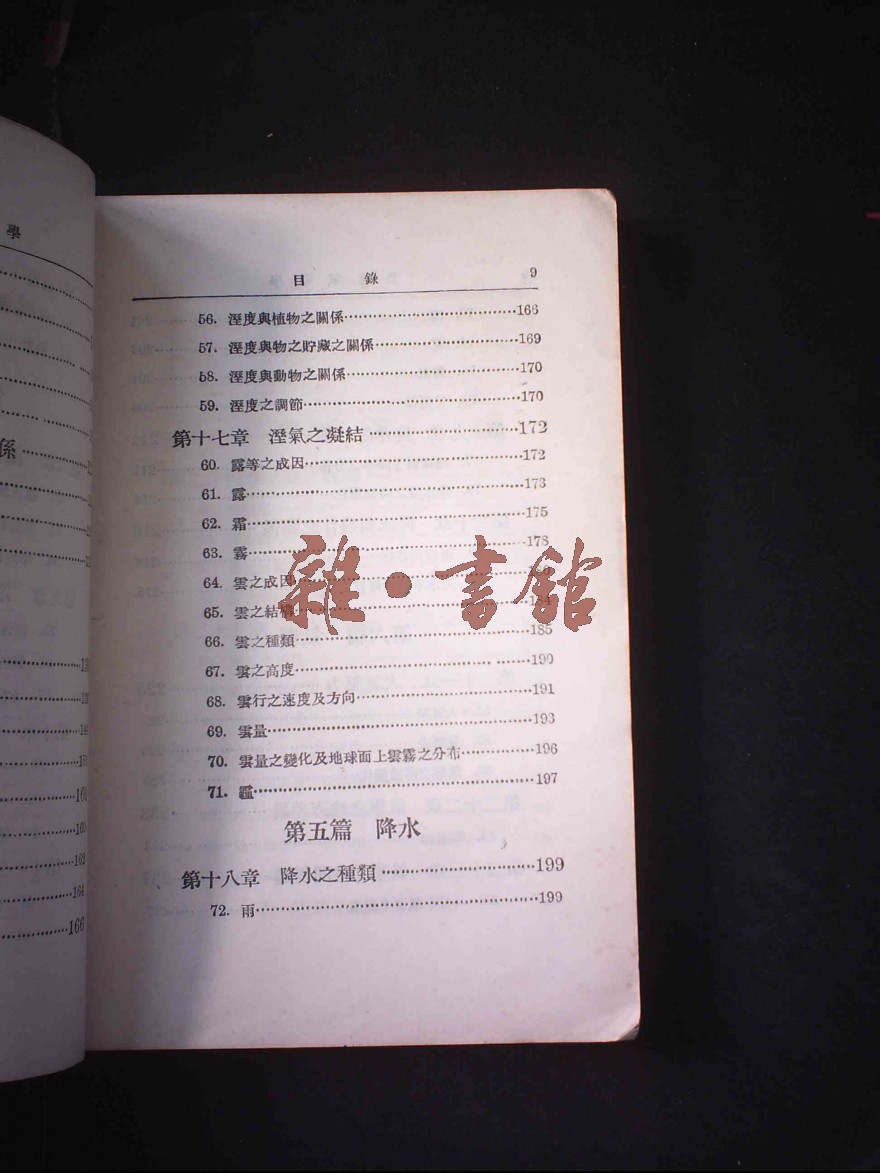 學
係
166
目 錄 9
56. 溼度與植物之關係 166
57. 溼度與物之貯藏之關係 169
58. 溼度與動物之關係 170
59. 溼度之調節 170
第十七章 溼氣之凝結 172
60. 露等之成因 172
61. 露 173
62. 霜 175
63. 霧 178
64. 雲之成因
65. 雲之結構 184
66. 雲之種類 185
67. 雲之高度 190
68. 雲行之速度及方向 191
69. 雲量 193
70. 雲量之變化及地球面上雲霧之分布 196
71. 霾 197
第五篇 降水
第十八章 降水之種類 199
72. 雨 199
雜·書館